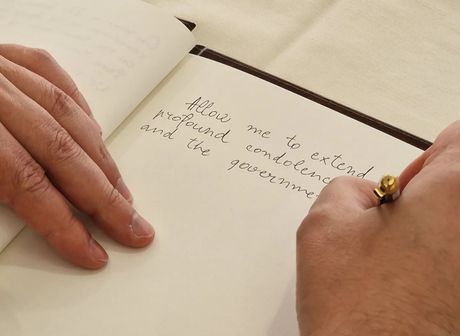 Allow me to extend
profound condolenc
and the governme